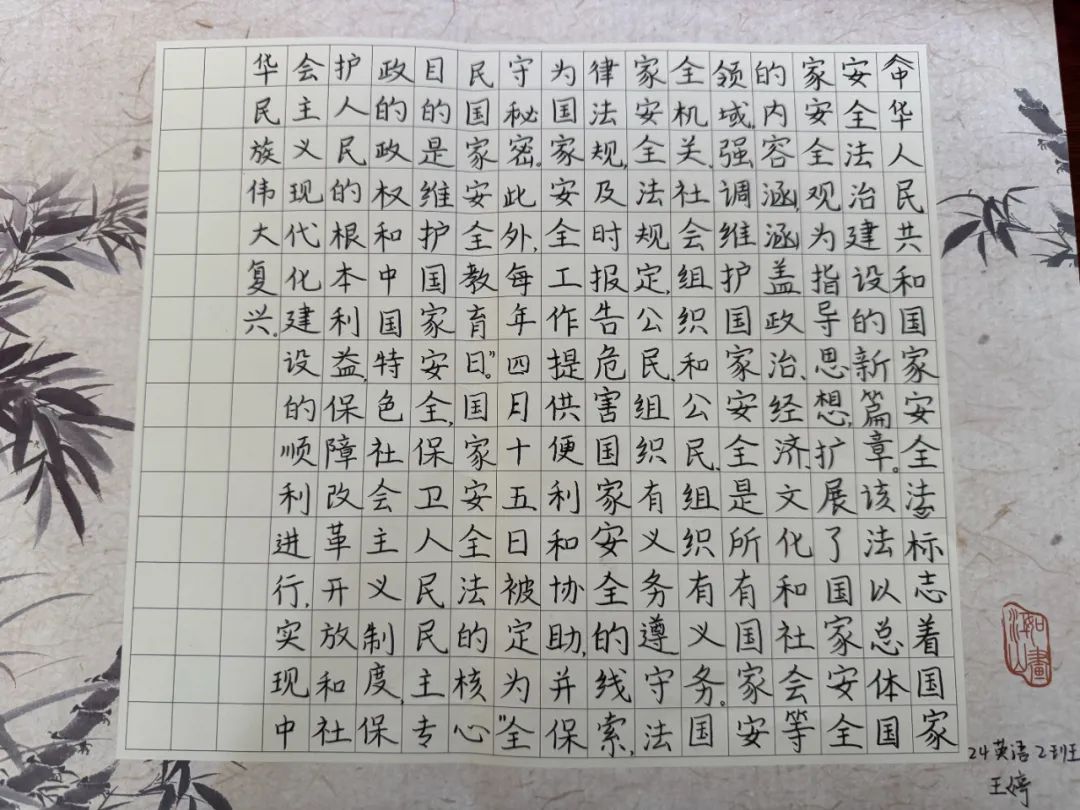 《中华人民共和国家安全法》标志着国家
安全法治建设的新篇章。该法以总体国
家安全观为指导思想,扩展了国家安全
的内容涵,涵盖政治、经济、文化和社会等
领域,强调维护国家安全是所有国家安
全机关、社会组织和公民、组织有义务。国
家安全法规定,公民、组织有义务遵守法
律法规,及时报告危害国家安全的线索,
为国家安全工作提供便利和协助,并保
守秘密。此外,每年四月十五日被定为“全
民国家安全教育日”。国家安全法的核心
目的是维护国家安全,保卫人民民主专
政的政权和中国特色社会主义制度,保
护人民的根本利益,保障改革开放和社
会主义现代化建设的顺利进行,实现中
华民族伟大复兴。
如畫
江山
24英语2班
王婷